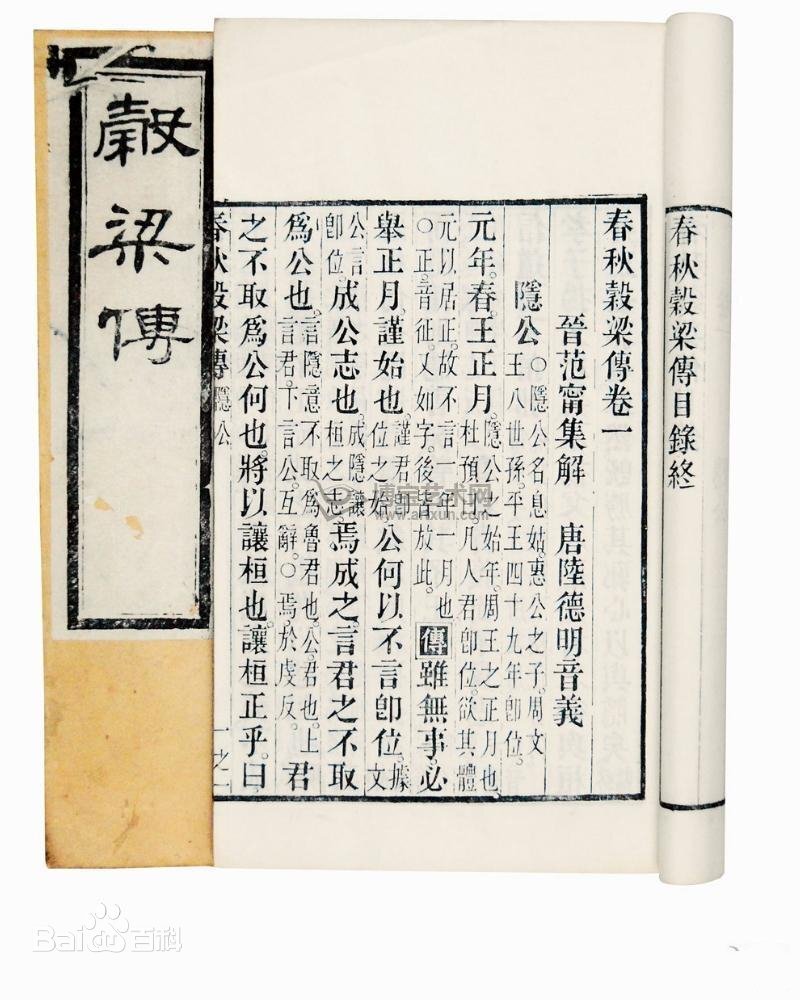 春秋穀梁傳目錄終
春秋穀梁傳卷一
晉范甯集解 唐陸德明音義
隱公 ○隱公名息姑。惠公之子。周文
王八世孫。平王四十九年卽位。
元年。春。王正月。隱公之始年。周王之正月也
杜預曰。凡人君卽位。欲其體
元以居正。故不言一年一月也
○正。音征。又如字。後皆放此。 傳 雖無事。必
舉正月。謹始也。謹君卽位之始 公何以不言卽位。據文
公言卽位 成公志也。成隱讓桓之志 焉成之。言君之不取
爲公也。言隱意不取爲魯君也。公。君也。上
言君。下言公。互辭。○焉。於虔反。 君
之不取爲公何也。將以讓桓也。讓桓正乎。曰
春秋穀梁傳 隱公 一之一
穀梁傳
博宝艺术网
www.artxun.com
Bai百科